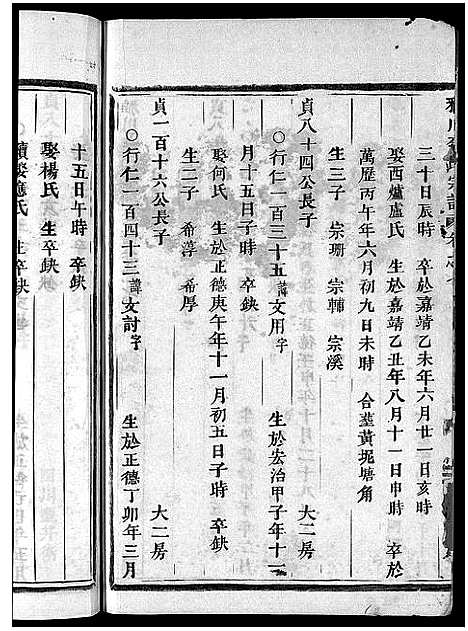 三十日辰時 卒於嘉靖乙未年六月廿一日亥時
娶西爐盧氏 生於嘉靖乙丑年八月十一日申時 卒於
萬歷丙午年六月初九日未時 合塟黃坭塘角
生三子 宗珊 宗輔 宗溪
貞八十四公長子 大二房
○行仁一百三十五諱文用字 生於宏治甲子年十一
月十五日子時 卒缺
娶何氏 生於正德庚午年十一月初五日子時 卒缺
生二子 希蓴 希厚
貞一百十六公長子 大二房
○行仁一百四十三諱文討字 生於正德丁卯年三月
十五日午時 卒缺
娶楊氏 生卒缺
續娶應氏 生卒缺